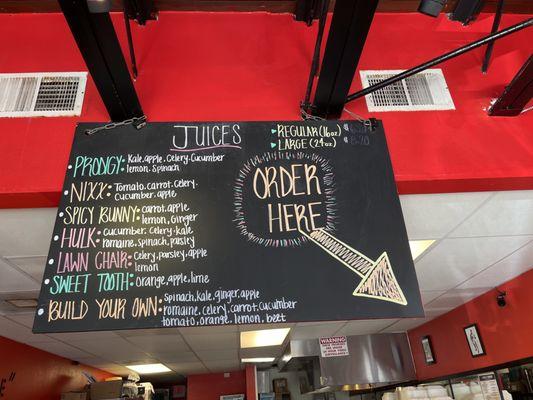 JUICES
REGULAR (16oz)
LARGE (24oz)
PRODIGY: Kale, apple, Celery, Cucumber
lemon, Spinach
NIXX: Tomato, carrot, Celery,
Cucumber, apple
SPICY BUNNY: carrot, apple
lemon, Ginger
HULK: cucumber, celery, kale
romaine, spinach, parsley
LAWN CHAIR: celery, parsley, apple
lemon
SWEET TOOTH: Orange, apple, lime
BUILD YOUR OWN: Spinach, Kale, ginger, apple
romaine, celery, parsley, carrot, cucumber
tomato, orange, lemon, beet
ORDER
HERE
WARNING